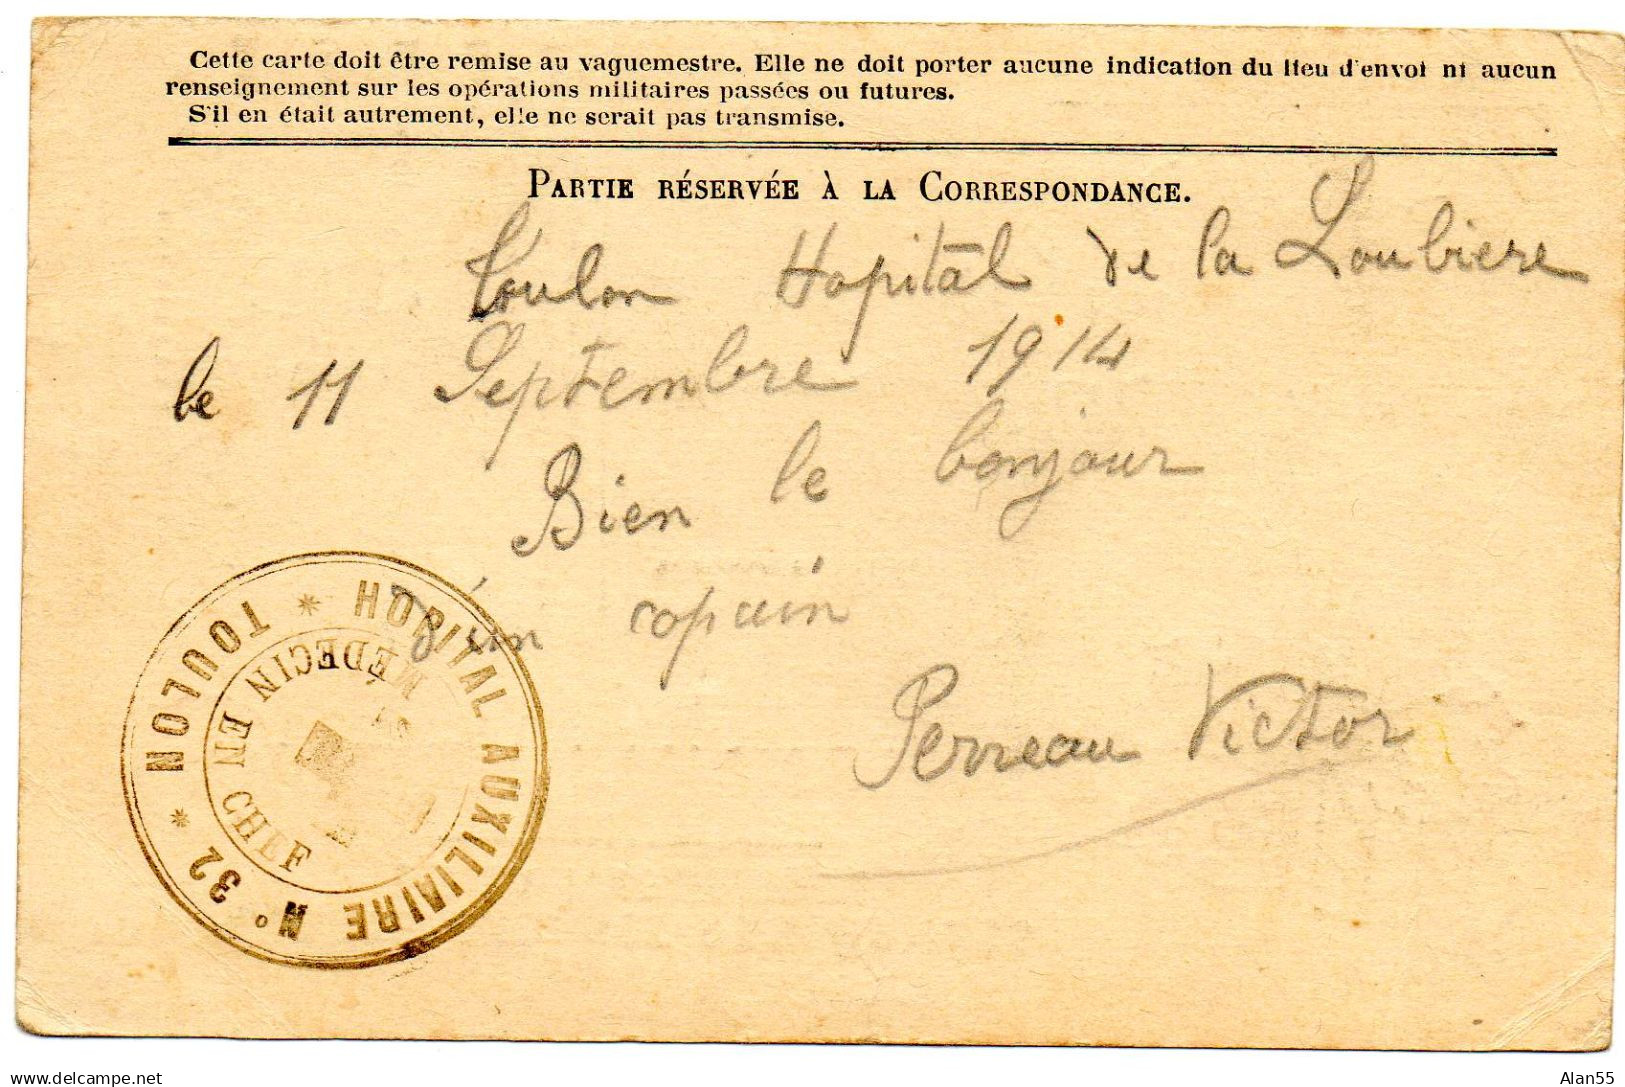 Cette carte doit être remise au vaguemestre. Elle ne doit porter aucune indication du lieu d'envoi ni aucun
renseignement sur les opérations militaires passées ou futures.
S'il en était autrement, elle ne serait pas transmise.
PARTIE RÉSERVÉE À LA CORRESPONDANCE.
Toulon Hopital de la Loubiere
le 11 Septembre 1914
Bien le bonjour
d'un copain
Perreau Victor
HOPITAL AUXILIAIRE N° 32 * TOULON *
MÉDECIN EN CHEF
www.delcampe.net
Alan55